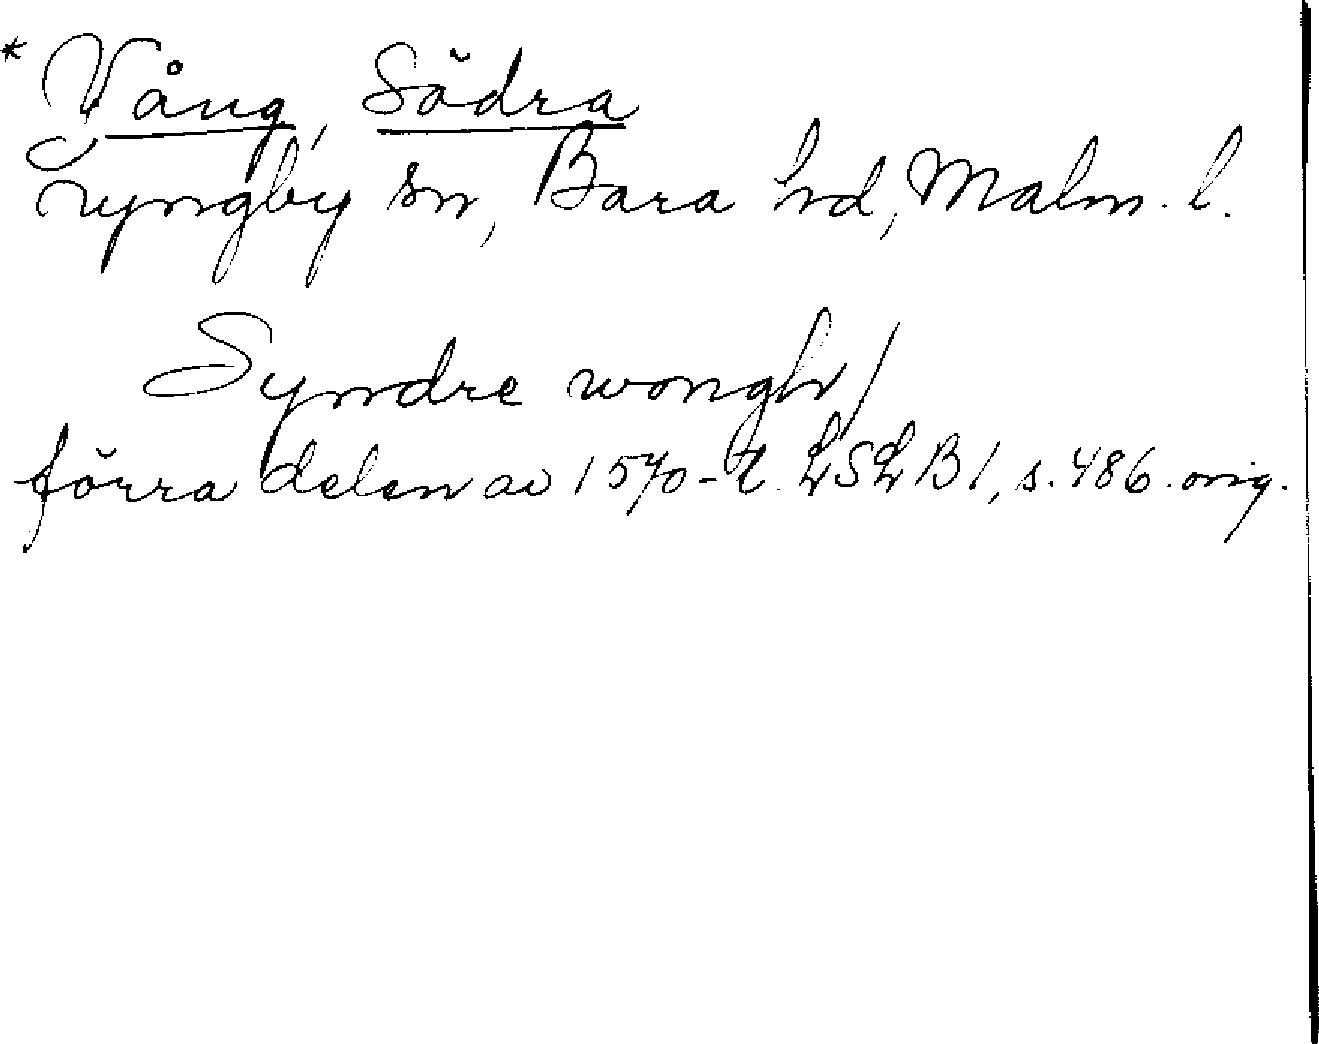 * Vång, Södra
Lyngby sn, Bara hd, Malm. l.
Syndre wongh/
förra delen av 1570-t. LSLB1, s. 486. orig.